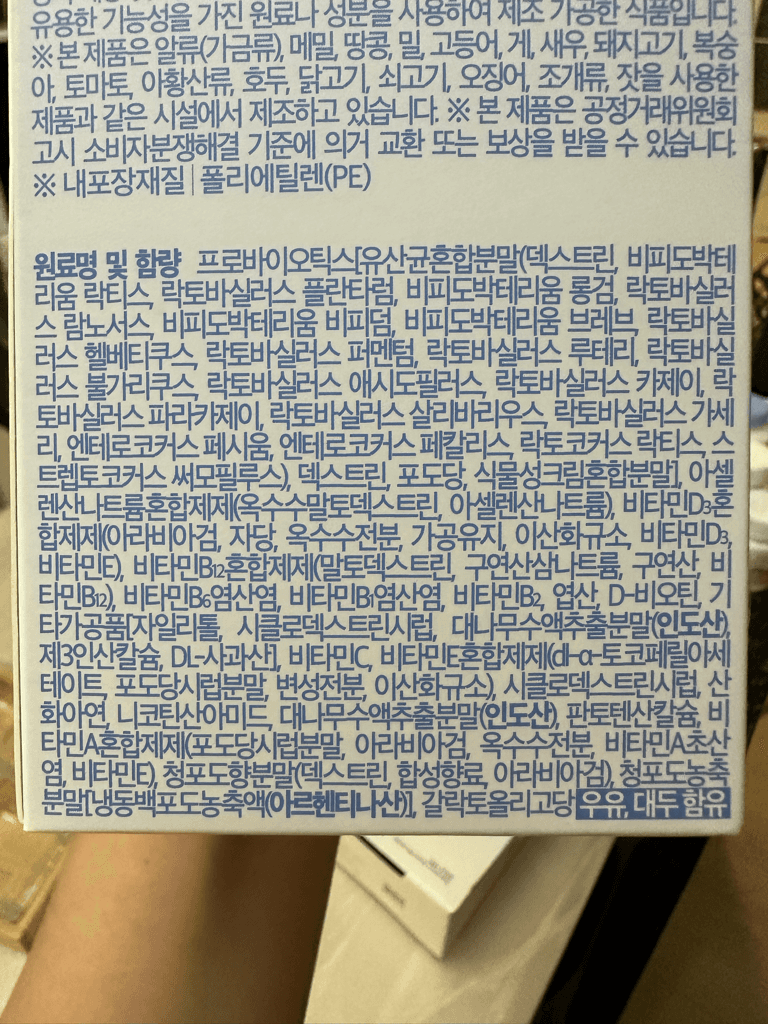 유용한 기능성을 가진 원료나 성분을 사용하여 제조 가공한 식품입니다.
※ 본 제품은 알류(가금류), 메밀, 땅콩, 밀, 고등어, 게, 새우, 돼지고기, 복숭
아, 토마토, 아황산류, 호두, 닭고기, 쇠고기, 오징어, 조개류, 잣을 사용한
제품과 같은 시설에서 제조하고 있습니다. ※ 본 제품은 공정거래위원회
고시 소비자분쟁해결 기준에 의거 교환 또는 보상을 받을 수 있습니다.
※ 내포장재질 | 폴리에틸렌(PE)
원료명 및 함량 프로바이오틱스[유산균혼합분말(덱스트린, 비피도박테
리움 락티스, 락토바실러스 플란타럼, 비피도박테리움 롱검, 락토바실러
스 람노서스, 비피도박테리움 비피덤, 비피도박테리움 브레브, 락토바실
러스 헬베티쿠스, 락토바실러스 퍼멘텀, 락토바실러스 루테리, 락토바실
러스 불가리쿠스, 락토바실러스 애시도필러스, 락토바실러스 카제이, 락
토바실러스 파라카제이, 락토바실러스 살리바리우스, 락토바실러스 가세
리, 엔테로코커스 페시움, 엔테로코커스 페칼리스, 락토코커스 락티스, 스
트렙토코커스 써모필루스), 덱스트린, 포도당, 식물성크림혼합분말], 아셀
렌산나트륨혼합제제(옥수수말토덱스트린, 아셀렌산나트륨), 비타민D₃혼
합제제(아라비아검, 자당, 옥수수전분, 가공유지, 이산화규소, 비타민D₃,
비타민E), 비타민B₁₂혼합제제(말토덱스트린, 구연산삼나트륨, 구연산, 비
타민B₁₂), 비타민B₆염산염, 비타민B₁염산염, 비타민B₂, 엽산, D-비오틴, 기
타가공품[자일리톨, 시클로덱스트린시럽, 대나무수액추출분말(인도산),
제3인산칼슘, DL-사과산], 비타민C, 비타민E혼합제제(dl-α-토코페릴아세
테이트, 포도당시럽분말, 변성전분, 이산화규소), 시클로덱스트린시럽, 산
화아연, 니코틴산아미드, 대나무수액추출분말(인도산), 판토텐산칼슘, 비
타민A혼합제제(포도당시럽분말, 아라비아검, 옥수수전분, 비타민A초산
염, 비타민E), 청포도향분말(덱스트린, 합성향료, 아라비아검), 청포도농축
분말[냉동백포도농축액(아르헨티나산)], 갈락토올리고당 우유, 대두 함유